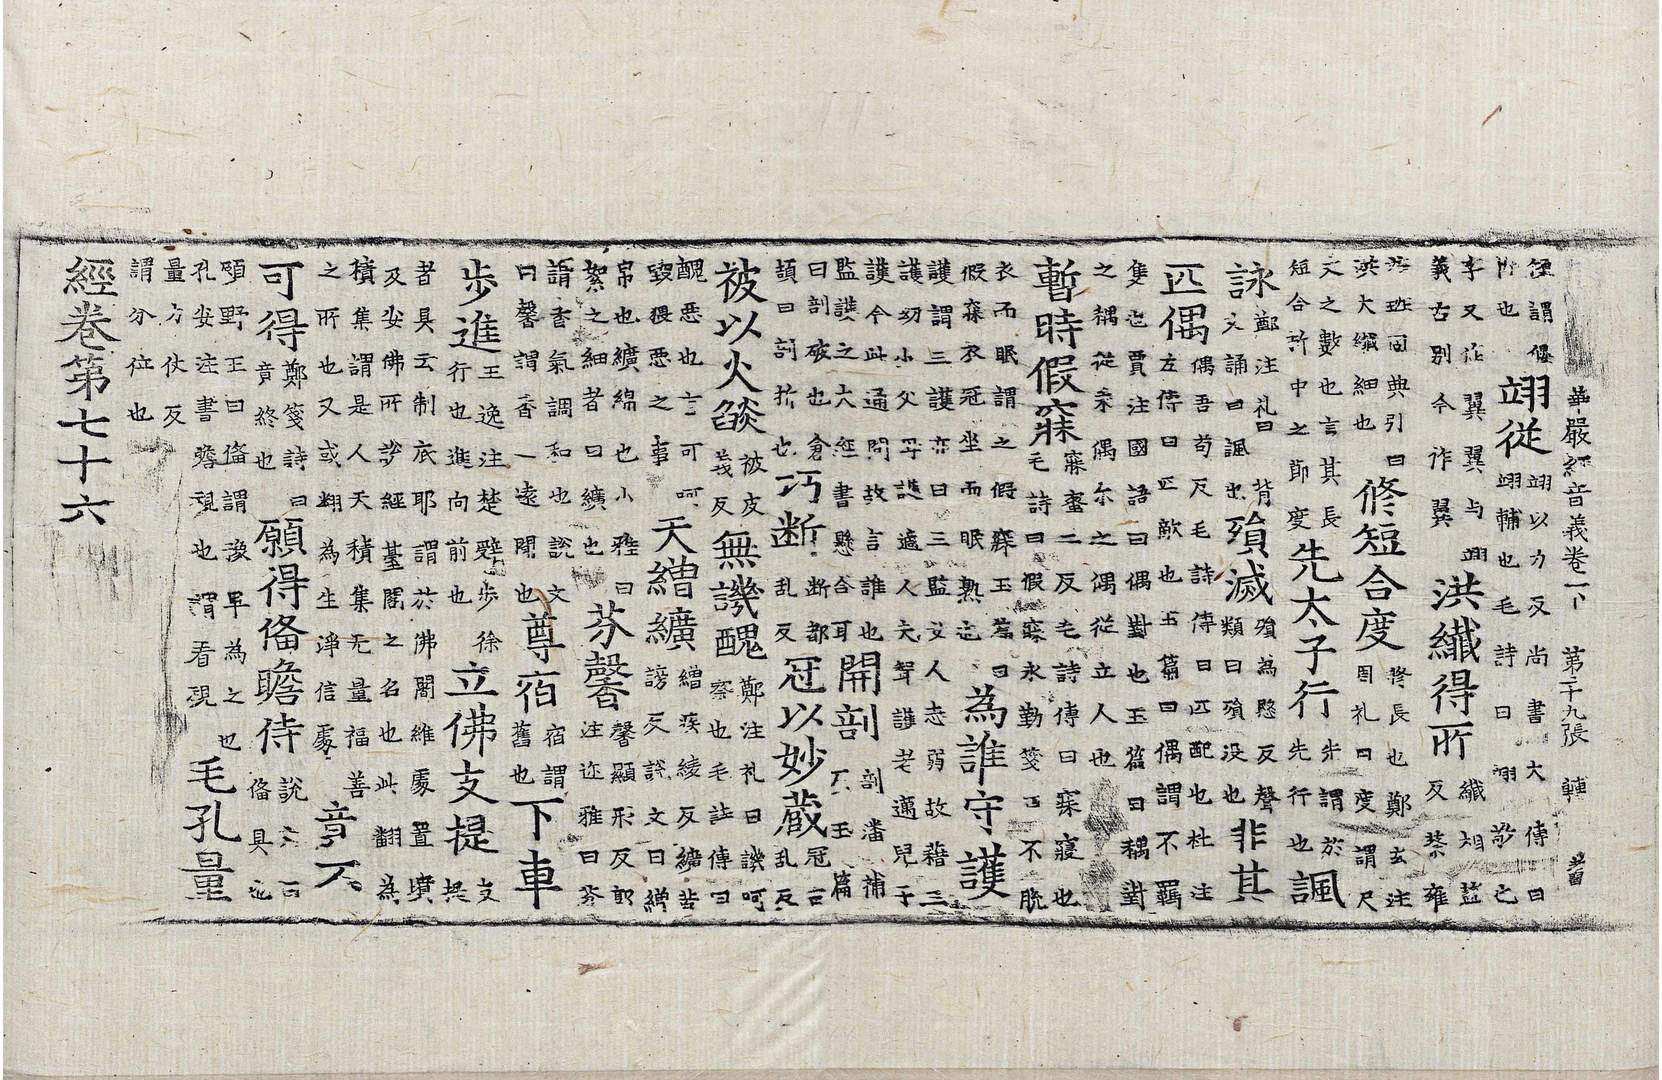 華嚴經音義卷下 第二十九張 轉
徑謂偃
附也
翊從
翊以力反尚書大傳曰
翊輔也毛詩曰翊敬也
字又作翼翼与翊
義古別今作翼
洪纖得所
纖相盬
反蔡雍
注班固典引曰
洪大纖細也
脩短合度
脩長也鄭玄注
周礼曰度謂尺
丈之數也言其長
短合於中之節度
先太子行
謂於
先行也
諷
詠
鄭注礼曰背
文誦曰諷也
殞滅
殞為愍反聲
類曰殞没也
非其
匹偶
偶吾苟反毛詩傳曰匹配也杜注
左傳曰匹敵也玉篇曰偶謂不羈
隻也賈注國語曰偶對也玉篇曰耦對
之耦從耒偶尒之偶從立人也
暫時假寐
寐蜜二反毛詩傳曰寐寢也
毛詩曰假寐永歎箋云不脫
衣而眠謂之假寐玉篇曰
假寐衣冠坐而眠熟也
為誰守護
護謂三護亦曰三監女人志弱故藉三
護幼小父母護適人夫聟護老邁兒子
護今此通問故言誰也
監護之六經書懸合耳
開剖
剖潘補
反玉篇
曰剖破也倉
頡曰剖析也
巧断
断都
乱反
冠以妙藏
冠古
乱反
被以火燄
被皮
義反
無譏醜
鄭注礼曰譏呵
察也毛詩傳曰
醜惡也言可呵
毀猥惡之事
天繒纊
繒疾綾反纊苦
謗反說文曰繒
帛也纊綿也小雅曰
絮之細者曰纊也
芬馨
馨顯形反郭
注迩雅曰芬
謂香氣調和也說文
曰馨謂香一遠聞也
尊宿
宿謂
舊也
下車
歩進
王逸注楚辭歩徐
行也進向前也
立佛支提
支
提
者具云制底耶謂於佛闍維處置墳
及安佛所說經基閣之名也此翻為
積集謂是人天積集无量福善
之所也又或翻為生淨信處
音不
可得
鄭箋詩曰
音終也
願得俻瞻侍
說文曰
俻具也
頋野王曰俻謂豫早為之也
孔安注書瞻視也謂看視
毛孔量
量力仗反
謂分位也
經卷第七十六